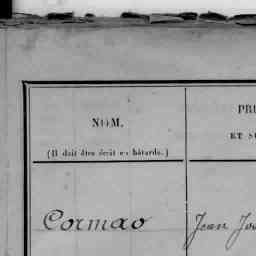 NOM.
(Il doit être écrit en bâtarde.)
PR
ET S
Cormao
Jean Jos